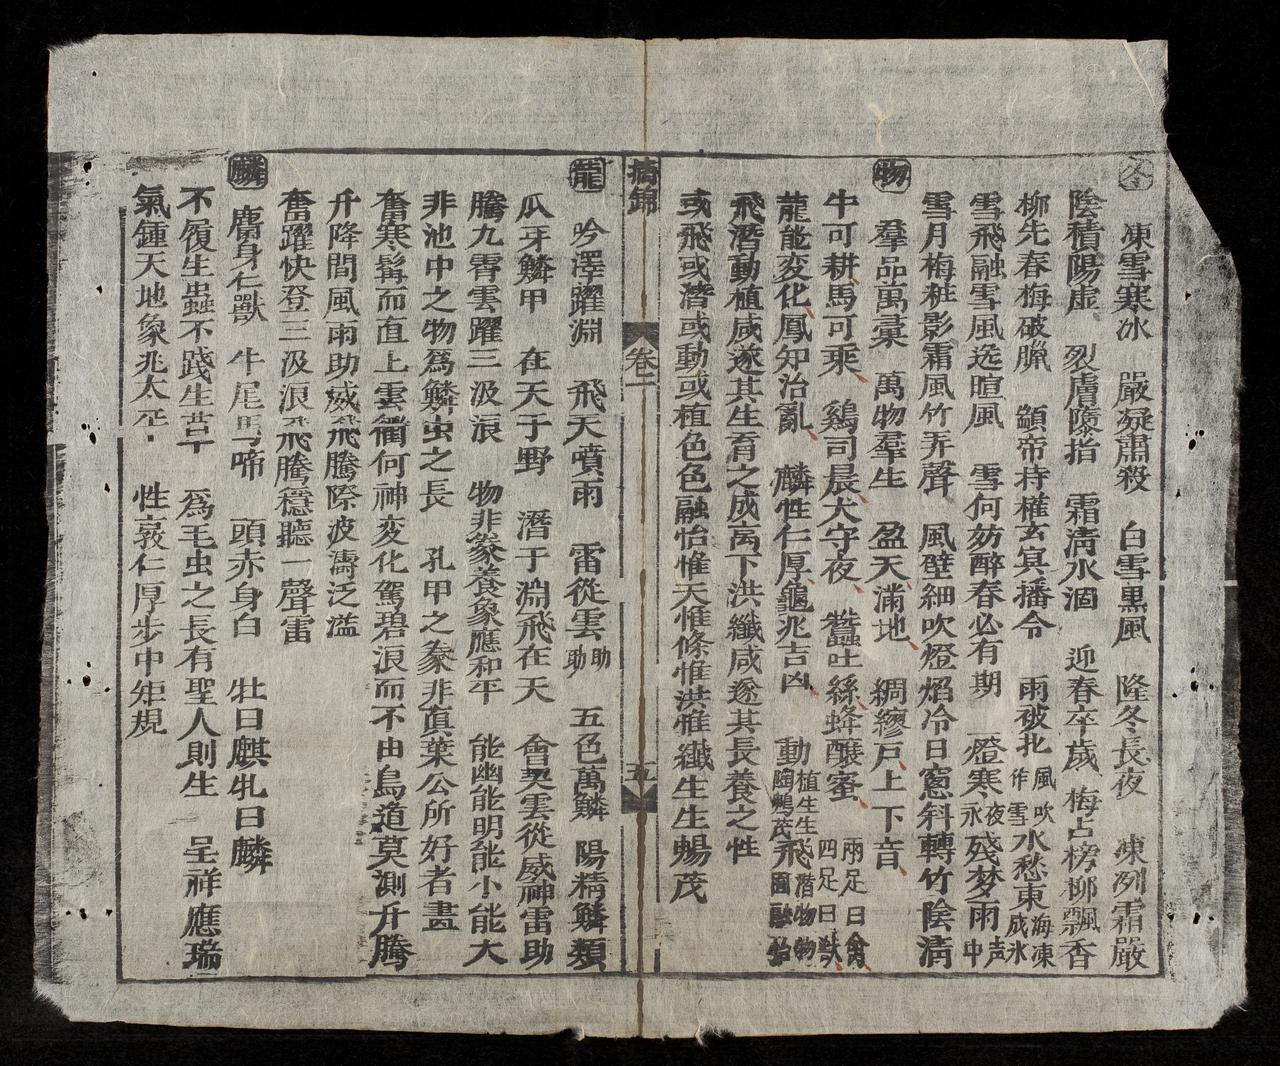 冬
凍雪寒冰 嚴凝肅殺 白雪黒風 隆冬長夜 凍冽霜嚴
陰積陽虚 裂膚墮指 霜清水涸 迎春卒歲 梅占榜柳飄香
柳先春梅破臘 顓帝持權玄冥播令 雨破北風吹作雪水愁東海凍成氷
雪飛融雪風迭暄風 雪何妨醉春必有期 燈寒夜永殘梦雨声中
雪月梅粧影霜風竹弄聲 風壁細吹燈焰冷日窻斜轉竹陰清
物
羣品萬彙 萬物羣生 盈天滿地 綢繆戸上下音
牛可耕馬可乘 鷄司晨犬守夜 蠶吐絲蜂釀蜜 兩足曰禽四足曰獸
龍能変化鳳知治亂 麟性仁厚龜兆吉凶 動植生生陶鴆茂飛潛物物圓融怡
飛潛動植咸遂其生育之成高下洪纖咸遂其長養之性
或飛或潛或動或植色色融怡惟天惟條惟洪惟纖生生暢茂
摘錦 卷一 五
龍
吟澤躍淵 飛天噴雨 雷從雲助助 五色萬鱗 陽精鱗類
瓜牙鱗甲 在天于野 潛于淵飛在天 會契雲從威神雷助
騰九霄雲躍三汲浪 物非豢養象應和平 能幽能明能小能大
非池中之物爲鱗虫之長 孔甲之豢非真葉公所好者畫
奮寒髯而直上雲衢何神変化駕碧浪而不由鳥道莫測升騰
升降間風雨助威飛騰際波濤泛溢
奮躍快登三汲浪飛騰穩聽一聲雷
麟
麕身仁獸 牛尾馬啼 頭赤身白 牡曰麒牝曰麟
不履生蟲不踐生草 爲毛虫之長有聖人則生 呈祥應瑞
氣鍾天地象兆太平 性敦仁厚步中矩規